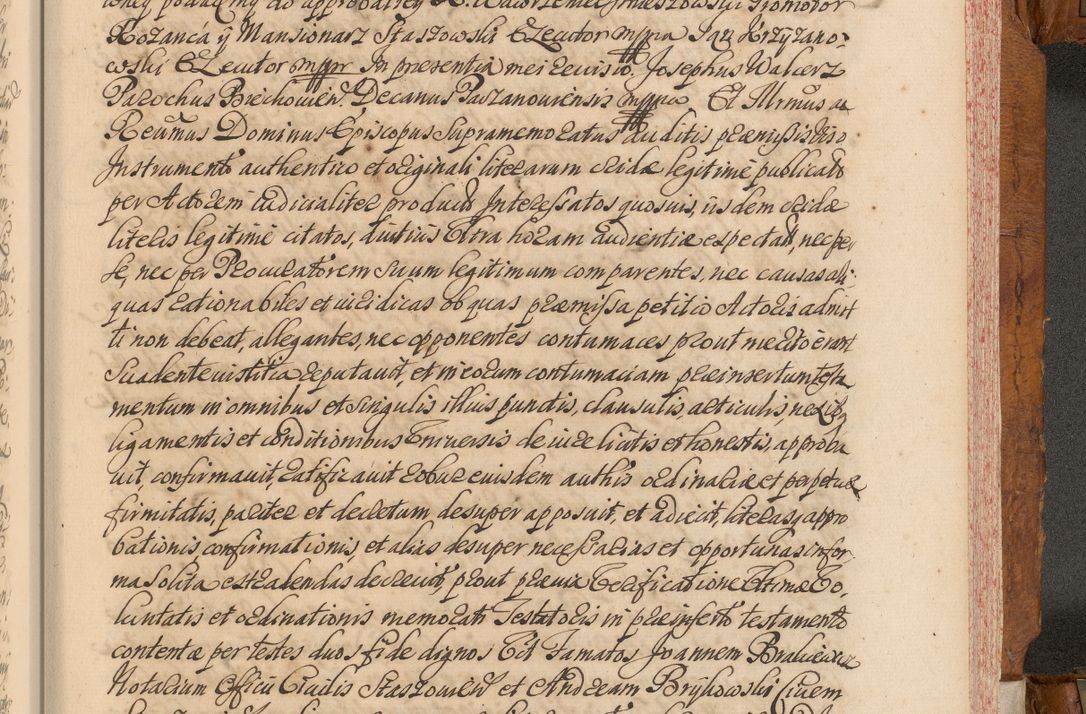 Rożancá ÿ Mansionarz Staszowski Executor mppria Jozy Krzyżano-
wski Executor mppr In presentia mei revisio. Josephus Walcerz
Parochus Brechovien. Decanus Paczanoviensis mppria. Et Illrmus ac
Reumus Dominus Episcopus Supramemoratus auditis præmissis viso
Instrumento authentico et originali literarum cridæ legitime publicato
per Actorem iudicialiter producto Interessatos quosvis, iisdem cridæ
literis legitime citatos, diutius Ultra horam audientiæ espectatos, nec per
se, nec per Procuratorem suum legitimum comparentes, nec causas ali-
quas rationabiles et iuridicas ob quas præmissa petitio Actoris admit
ti non debeat, allegantes, nec opponentes contumaces prout merito erant
Suadente iustitia reputavit, et in eorum contumaciam præinsertum testa
mentum in omnibus et singulis illius punctis, clausulis, articulis, nexibus
ligamentis et conditionibus Universis de iure licitis et honestis, approba
vit confirmavit, ratificavit robur eiusdem authis ordinariæ et perpetuæ
firmitatis, pariter et decretum desuper apposuit, et adiecit, literasq appro
bationis confirmationis, et alias desuper necessarias et opportunas in for-
ma solita extralendas decrevit, prout prævia Verificatione Ultimæ Vo-
luntatis et ordinationis memorati Testatoris in præinserto testamento
contentæ per testes duos fide dignos Utt Famatos Joannem
Notarium Officii Civilis Staszovien et Andream Brykowski Civem